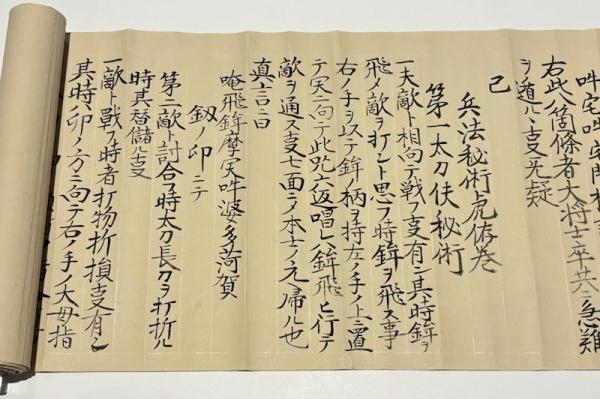 右此八箇條者大将士卒共ニ急難
ヲ道ルハ支无疑
己
兵法秘術虎依巻
第一太刀伏秘術
一夫敵ト相向テ戦フ支有ン其時鉾ヲ
飛メ敵ヲ打ント思フ時鉾ヲ飛ス事
右ノ手ヲ以テ鉾ノ柄ヲ持左ノ手ノ上ニ置
テ天ニ向テ此咒八返唱レハ鉾飛ヒ行テ
敵ヲ通ス支七面ニノ本士ノ元帰ル也
真言曰
唵飛鉾摩実吽婆多苛賀
釼ノ印ニテ
第二敵ト討合フ時太刀長刀ヲ打折ル
時其替儲ル支
一敵ト戦フ時者打物折損支有ン
其時八卯ノ方ニ向テ右ノ手ノ大母指